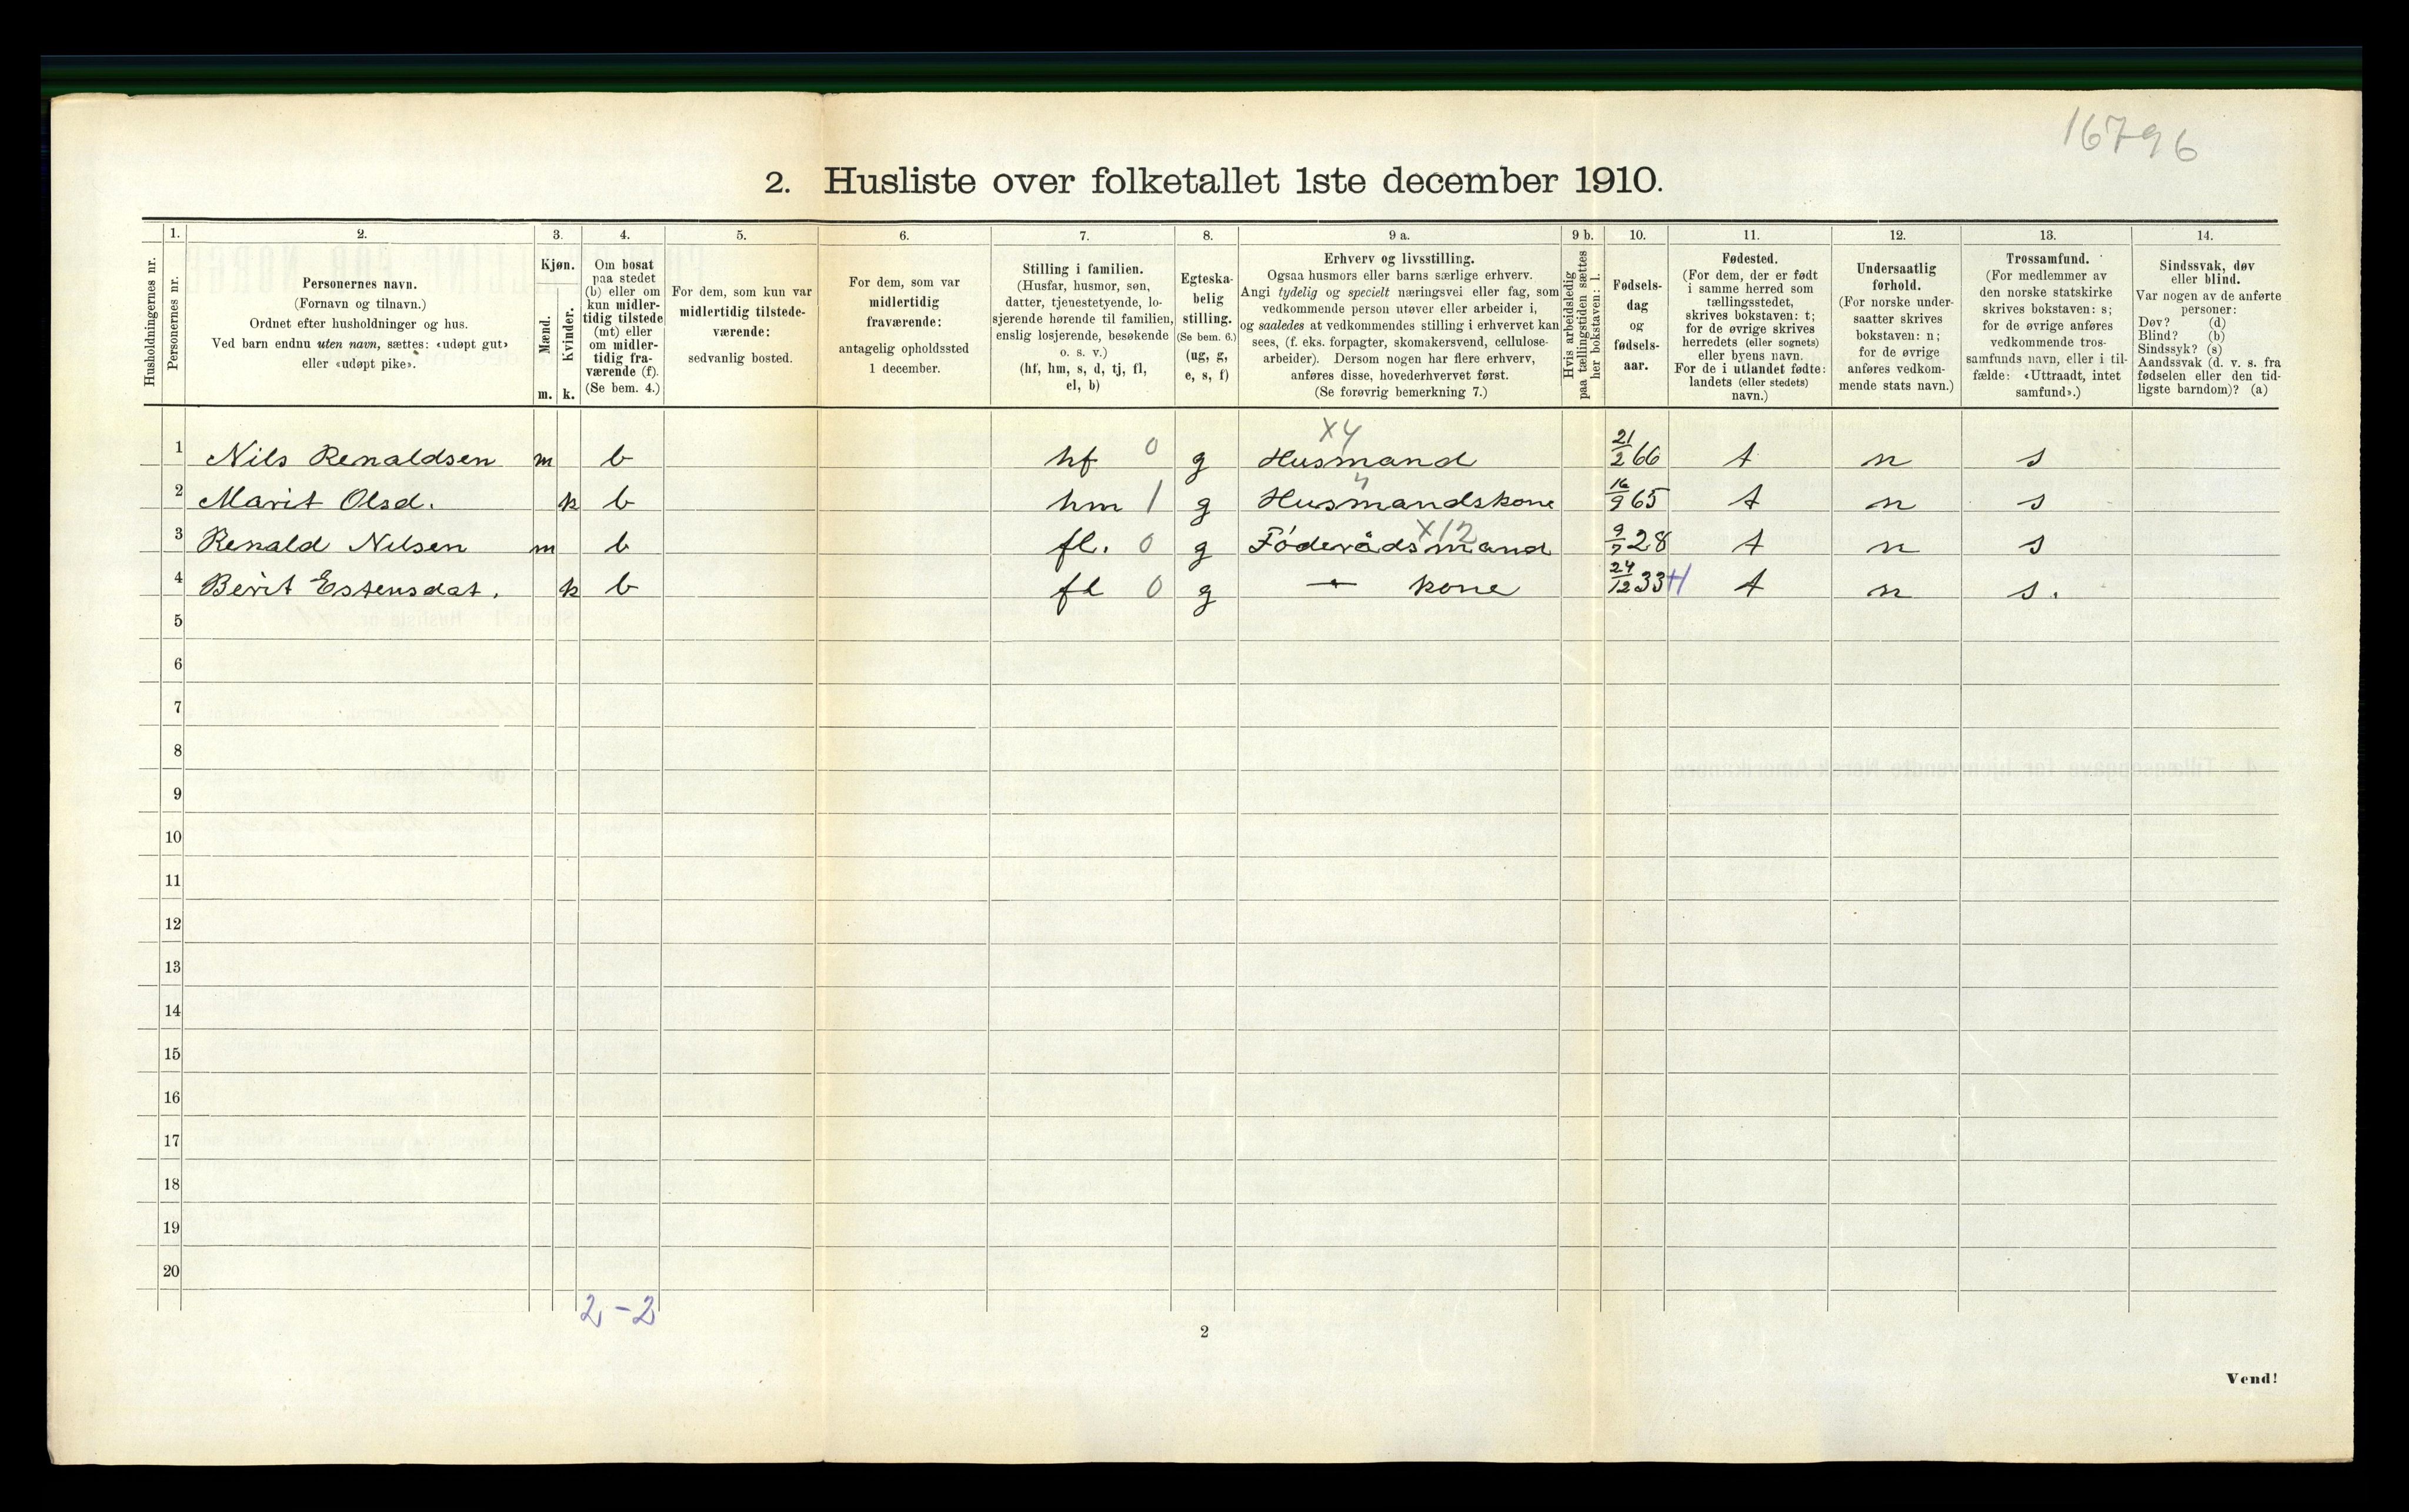 16796
2. Husliste over folketallet 1ste december 1910.
1. 2. 3. 4. 5. 6. 7. 8. 9 a. 9 b. 10. 11. 12. 13. 14.
Husholdningernes nr.
Personernes nr.
Personernes navn.
(Fornavn og tilnavn.)
Ordnet efter husholdninger og hus.
Ved barn endnu uten navn, sættes: «udøpt gut»
eller «udøpt pike».
Kjøn.
Mænd.
Kvinder.
m. k.
Om bosat
paa stedet
(b) eller om
kun midler-
tidig tilstede
(mt) eller
om midler-
tidig fra-
værende (f).
(Se bem. 4.)
For dem, som kun var
midlertidig tilstede-
værende:
sedvanlig bosted.
For dem, som var
midlertidig
fraværende:
antagelig opholdssted
1 december.
Stilling i familien.
(Husfar, husmor, søn,
datter, tjenestetyende, lo-
sjerende hørende til familien,
enslig losjerende, besøkende
o. s. v.)
(hf, hm, s, d, tj, fl,
el, b)
Egteska-
belig
stilling.
(Se bem. 6.)
(ug, g,
e, s, f)
Erhverv og livsstilling.
Ogsaa husmors eller barns særlige erhverv.
Angi tydelig og specielt næringsvei eller fag, som
vedkommende person utøver eller arbeider i,
og saaledes at vedkommendes stilling i erhvervet kan
sees, (f. eks. forpagter, skomakersvend, cellulose-
arbeider). Dersom nogen har flere erhverv,
anføres disse, hovederhvervet først.
(Se forøvrig bemerkning 7.)
Hvis arbeidsledig
paa tællingstiden sættes
her bokstaven: l.
Fødsels-
dag
og
fødsels-
aar.
Fødested.
(For dem, der er født
i samme herred som
tællingsstedet,
skrives bokstaven: t;
for de øvrige skrives
herredets (eller sognets)
eller byens navn.
For de i utlandet fødte:
landets (eller stedets)
navn.)
Undersaatlig
forhold.
(For norske under-
saatter skrives
bokstaven: n;
for de øvrige
anføres vedkom-
mende stats navn.)
Trossamfund.
(For medlemmer av
den norske statskirke
skrives bokstaven: s;
for de øvrige anføres
vedkommende tros-
samfunds navn, eller i til-
fælde: «Uttraadt, intet
samfund».)
Sindssvak, døv
eller blind.
Var nogen av de anførte
personer:
Døv? (d)
Blind? (b)
Sindssyk? (s)
Aandssvak (d. v. s. fra
fødselen eller den tid-
ligste barndom)? (a)
X4
1 Nils Renaldsen m b hf 0 g Husmand 21/2 66 t n s
4
2 Marit Olsd. k b hm 1 g Husmandskone 16/9 65 t n s
X12
3 Renald Nilsen m b fl. 0 g Föderådsmand 9/7 28 t n s
4 Berit Estensdat. k b fl 0 g - " - kone 24/12 33 H t n s.
5
6
7
8
9
10
11
12
13
14
15
16
17
18
19
20
2-2
2
Vend!